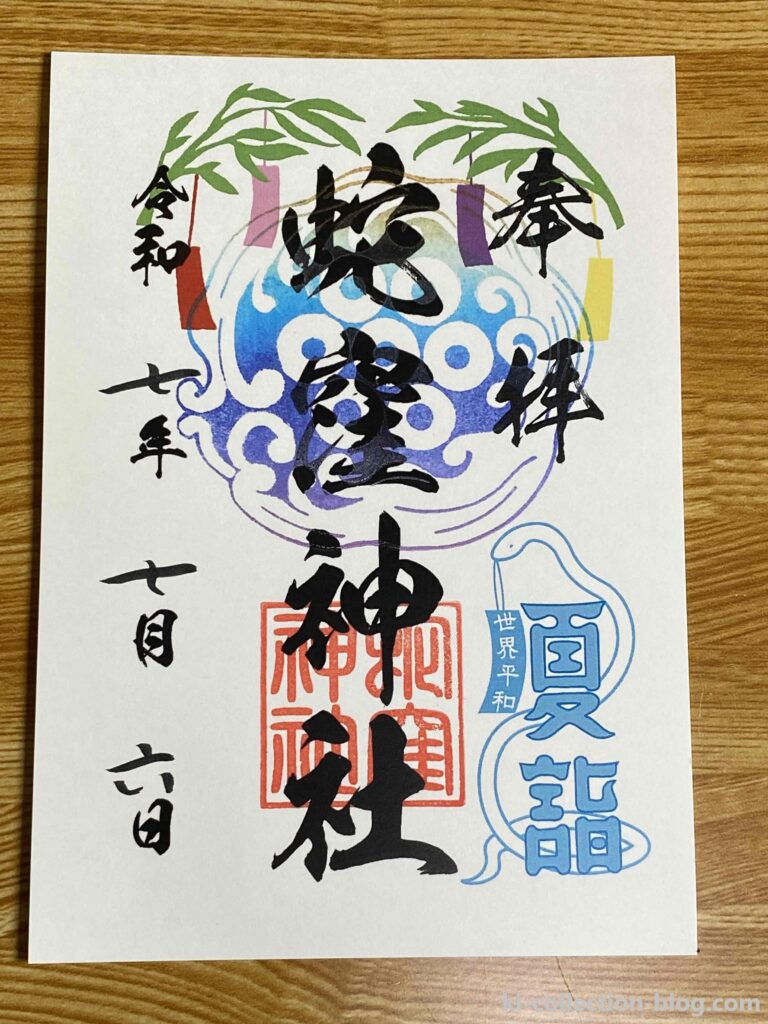 奉拝
夏詣
世界平和
蛇窪神社
蛇窪
神社
令和七年七月六日
kf-collection-blog.com